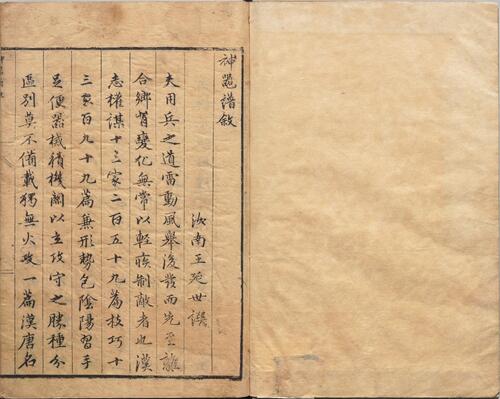 神器譜敘
汝南王延世譔
夫用兵之道雷動風舉後發而先至離
合鄉背變化無常以輕疾制敵者也漢
志權謀十三家二百五十九篇技巧十
三家百九十九篇兼形勢包陰陽習手
足便器械積機關以立攻守之勝種分
區別莫不備載獨無火攻一篇漢唐名